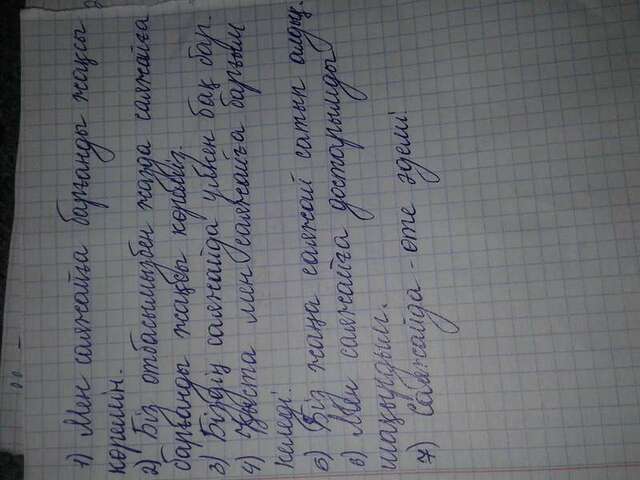 1) Мен саяжайға барғанды жақсы
көремін.
2) Біз отбасымызбен жазда саяжайға
барғанды жақсы көреміз.
3) Біздің саяжайда үлкен бақ бар.
4) Қыста мен саяжайға барғым
келеді.
5) Біз жаңа саяжай сатып алдық.
6) Мен саяжайға достарымды
шақырдым.
7) Саяжайда - өте әдемі!